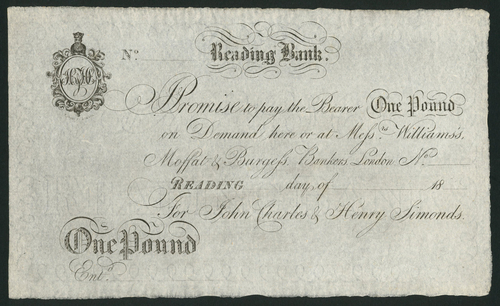 No. Reading Bank.
I Promise to pay the Bearer One Pound
on Demand here or at Messrs. Williams's,
Moffat & Burgess, Bankers, London No.
READING day, of 18
For John Charles & Henry Simonds.
One Pound
Entd.